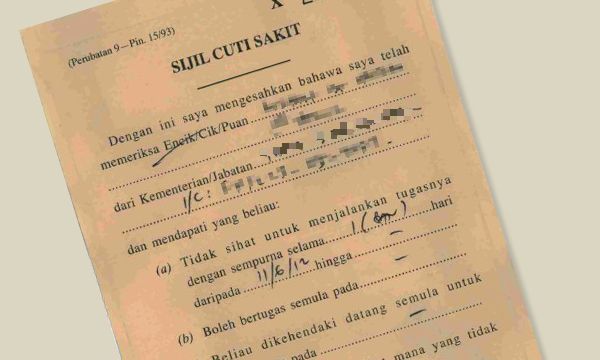 (Perubatan 9—Pin. 15/93)
X
SIJIL CUTI SAKIT
Dengan ini saya mengesahkan bahawa saya telah
memeriksa Encik/Cik/Puan
dari Kementerian/Jabatan
I/C:
dan mendapati yang beliau:
(a) Tidak sihat untuk menjalankan tugasnya
dengan sempurna selama 1 ( ) hari
daripada 11/6/12 hingga –
(b) Boleh bertugas semula pada –
Beliau dikehendaki datang semula untuk
pada –
mana yang tidak